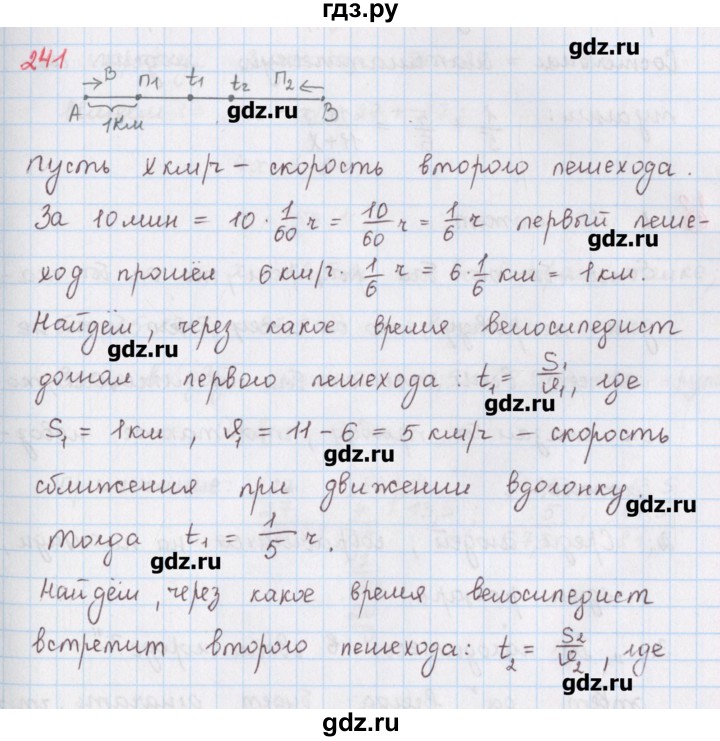 гдз.ру
241
В П1 t1 t2 П2
А В
1км
gdz.ru
Пусть x км/ч – скорость второго пешехода.
За 10 мин = 10 · 1/60 ч = 10/60 ч = 1/6 ч первый пеше-
gdz.ru
ход прошёл 6 км/ч · 1/6 ч = 6 · 1/6 км = 1 км.
Найдём, через какое время велосипедист
gdz.ru
догнал первого пешехода: t1 = S1/υ1, где
gdz.ru
S1 = 1 км, υ1 = 11 – 6 = 5 км/ч – скорость
gdz.ru
сближения при движении вдогонку.
gdz.ru
Тогда t1 = 1/5 ч.
gdz.ru
Найдём, через какое время велосипедист
gdz.ru
встретит второго пешехода: t2 = S2/υ2, где
gdz.ru
gdz.ru